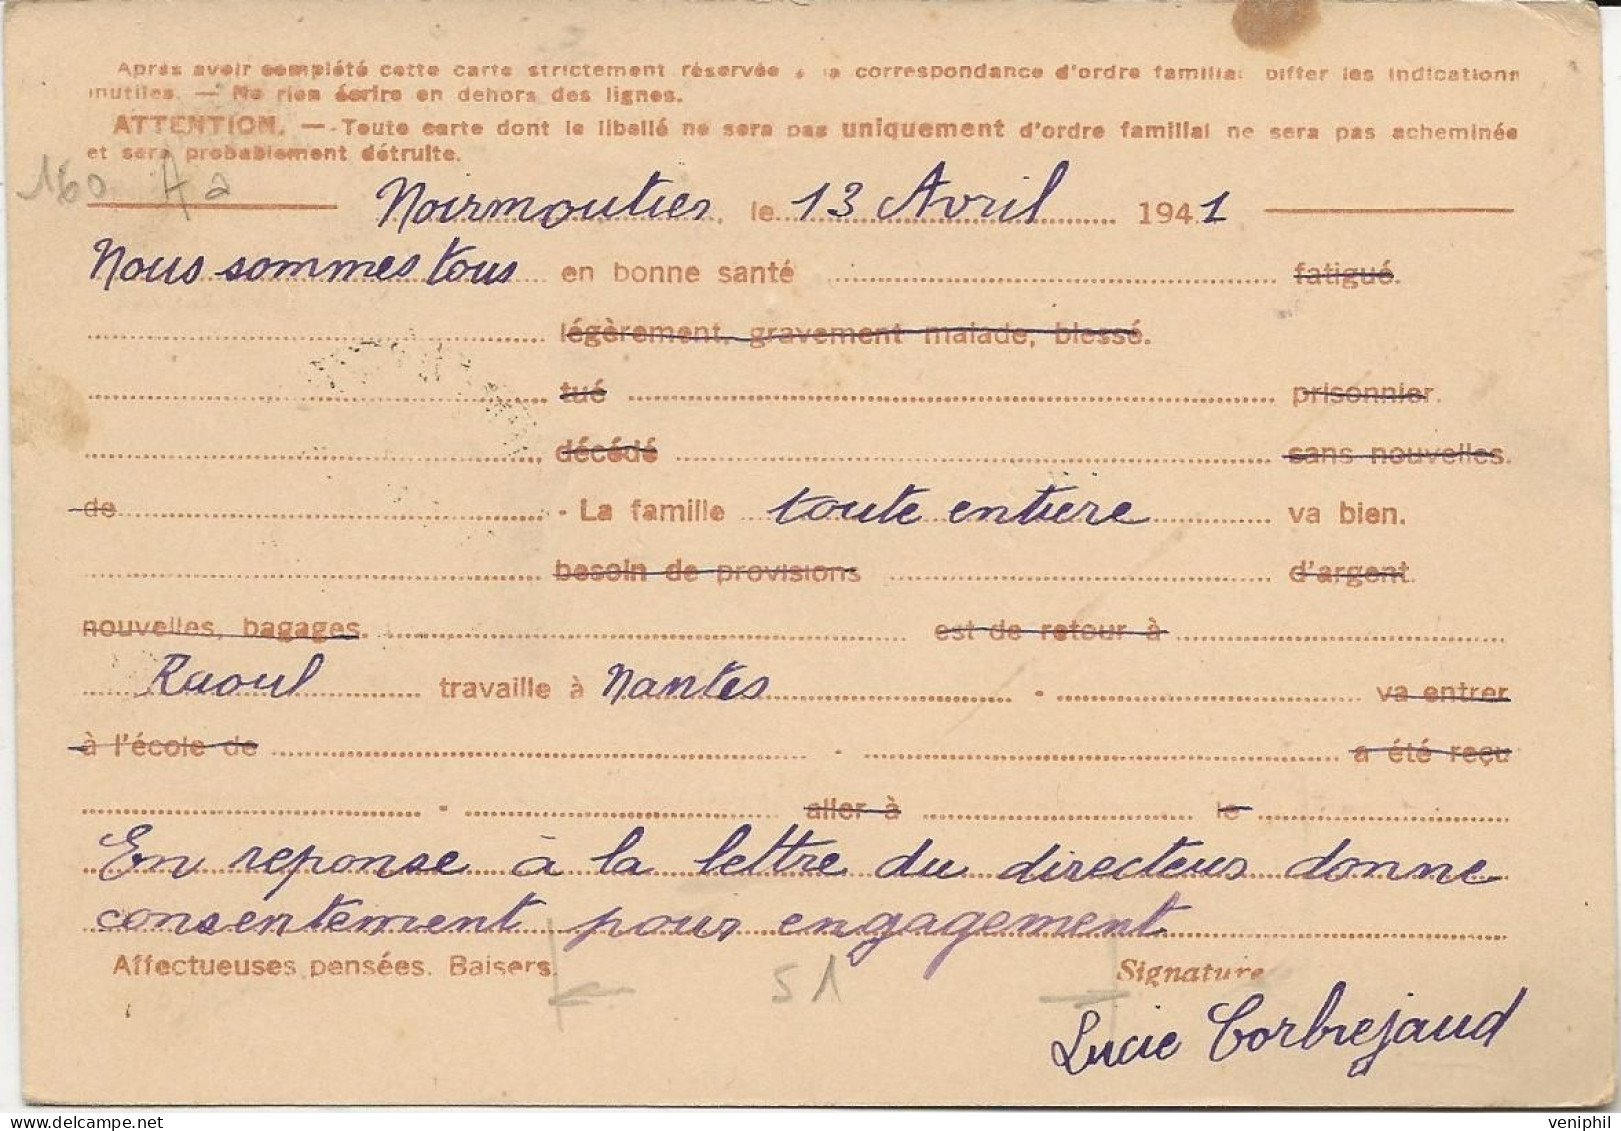 Après avoir complété cette carte strictement réservée à la correspondance d'ordre familial biffer les indications
inutiles. — Ne rien écrire en dehors des lignes.
ATTENTION. — Toute carte dont le libellé ne sera pas uniquement d'ordre familial ne sera pas acheminée
et sera probablement détruite.
160 A2
Noirmoutier, le 13 Avril 1941
Nous sommes tous en bonne santé fatigué.
légèrement, gravement malade, blessé.
tué prisonnier.
décédé sans nouvelles.
de - La famille toute entière va bien.
besoin de provisions d'argent.
nouvelles, bagages. est de retour à
Raoul travaille à Nantes - va entrer
à l'école de - a été reçu
- aller à le
En reponse à la lettre du directeur donne
consentement pour engagement
Affectueuses pensées. Baisers.
Signature
51
Lucie Corbrejaud
veniphil